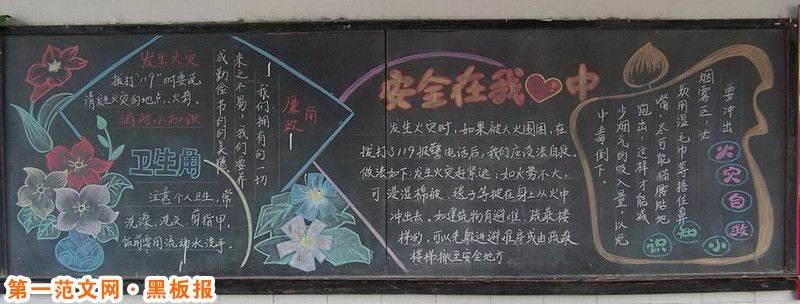 发生火灾
拨打"119"时要说
清发生火灾的地点、火势。
消防小知识
卫生角
注意个人卫生，常
洗澡、洗头、剪指甲，
饭前要用流动水洗手。
廉政角
我们拥有的一切
来之不易，我们要养
成勤俭节约的美德。
安全在我心中
发生火灾时，如果被大火围困，在
拨打119报警电话后，我们应设法自救。
做法如下：发生火灾赶紧逃；如火势不大，
可浸湿棉被、毯子等披在身上从火中
冲出去。如建筑物有避难、疏散楼
梯的，可以先躲进避难库或由疏散
楼梯撤至安全地方
火灾自救
小知识
要冲出
烟雾区，必
须用湿毛巾等捂住鼻
常，尽可能猫腰贴地
跑出，这样才能减
少烟气的吸入量，以免
中毒倒下。
第一范文网·黑板报